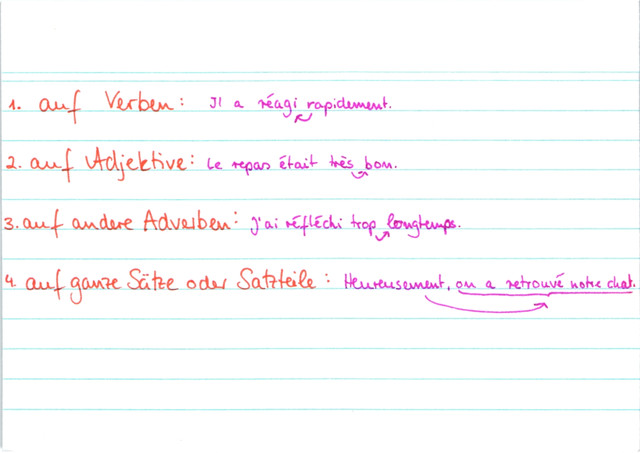 1. auf Verben: Il a réagi rapidement.
2. auf Adjektive: Le repas était très bon.
3. auf andere Adverben: J'ai réfléchi trop longtemps.
4. auf ganze Sätze oder Satzteile: Heureusement, on a retrouvé notre chat.